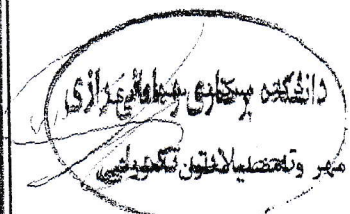 دانشکده پرستاری و مامائی رازی
مهر و تحصیلات تکمیلی